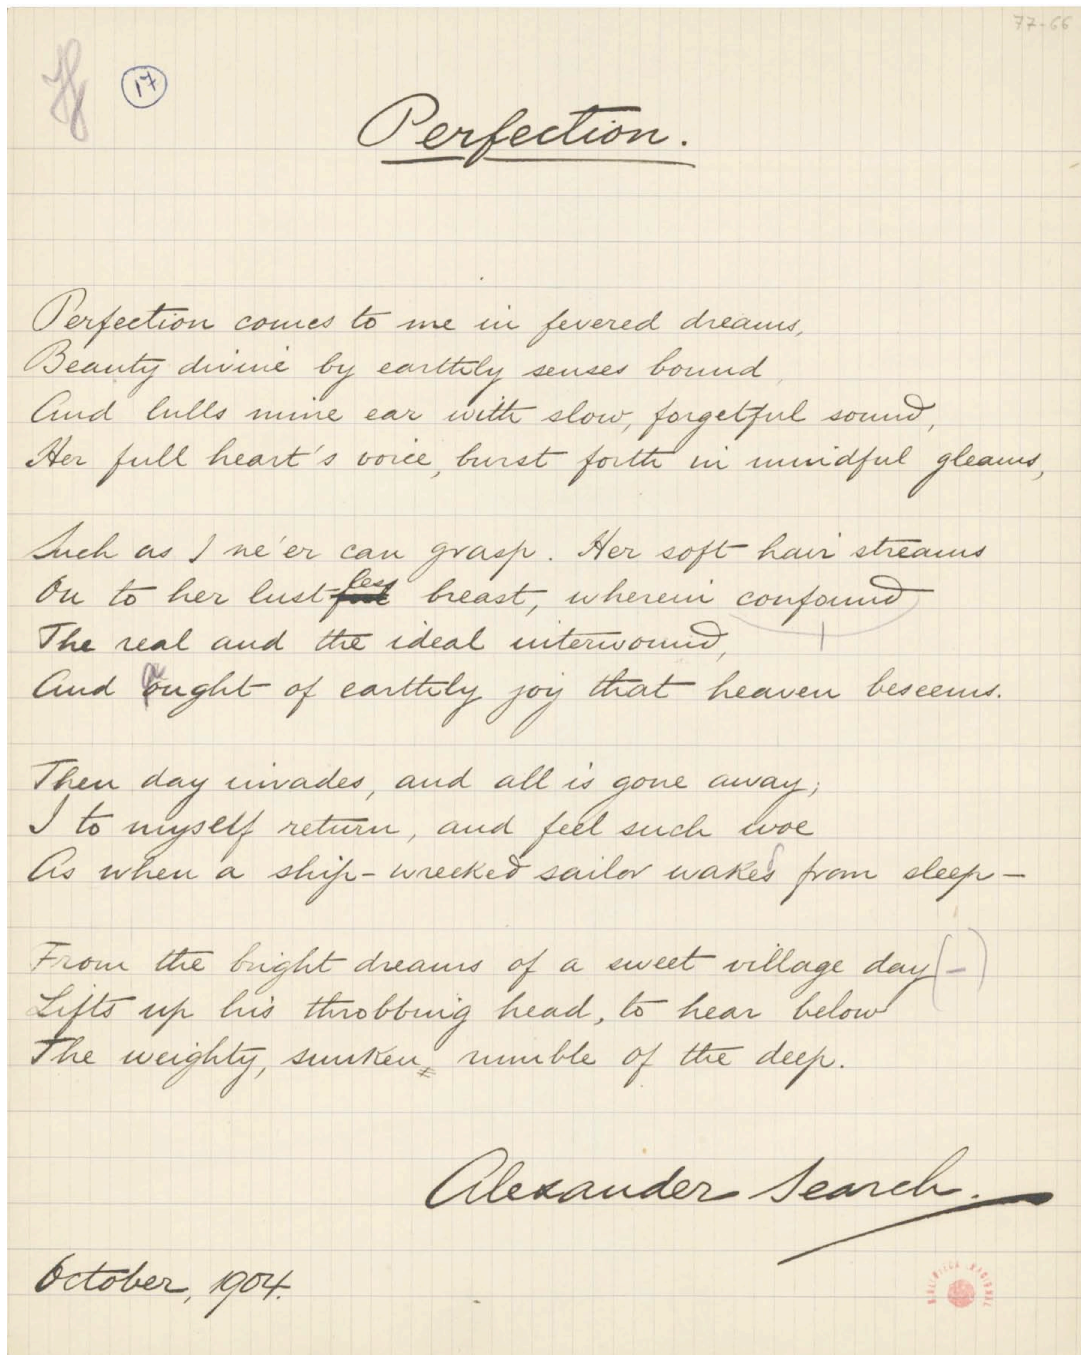 77-66
17
Perfection.
Perfection comes to me in fevered dreams,
Beauty divine by earthly senses bound,
And lulls mine ear with slow, forgetful sound,
Her full heart's voice, burst forth in mindful gleams,
Such as I ne'er can grasp. Her soft hair streams
On to her lustless breast, wherein confound
The real and the ideal interwound,
And aught of earthly joy that heaven beseems.
Then day invades, and all is gone away;
I to myself return, and feel such woe
As when a ship-wrecked sailor wakes from sleep -
From the bright dreams of a sweet village day (-)
Lifts up his throbbing head, to hear below
The weighty, sunken rumble of the deep.
Alexander Search.
October, 1904.
BIBLIOTECA NACIONAL